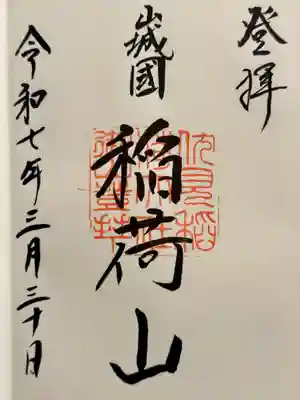 登拜
山城國
稲荷山
令和七年三月三十日